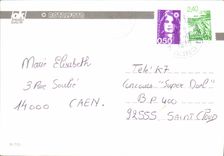 0,50
2,40
Marie Elisabeth
3 Rue
14000 CAEN.
Télé K7
Concours "Super
B.P 400
92555 SAINT CLOUD